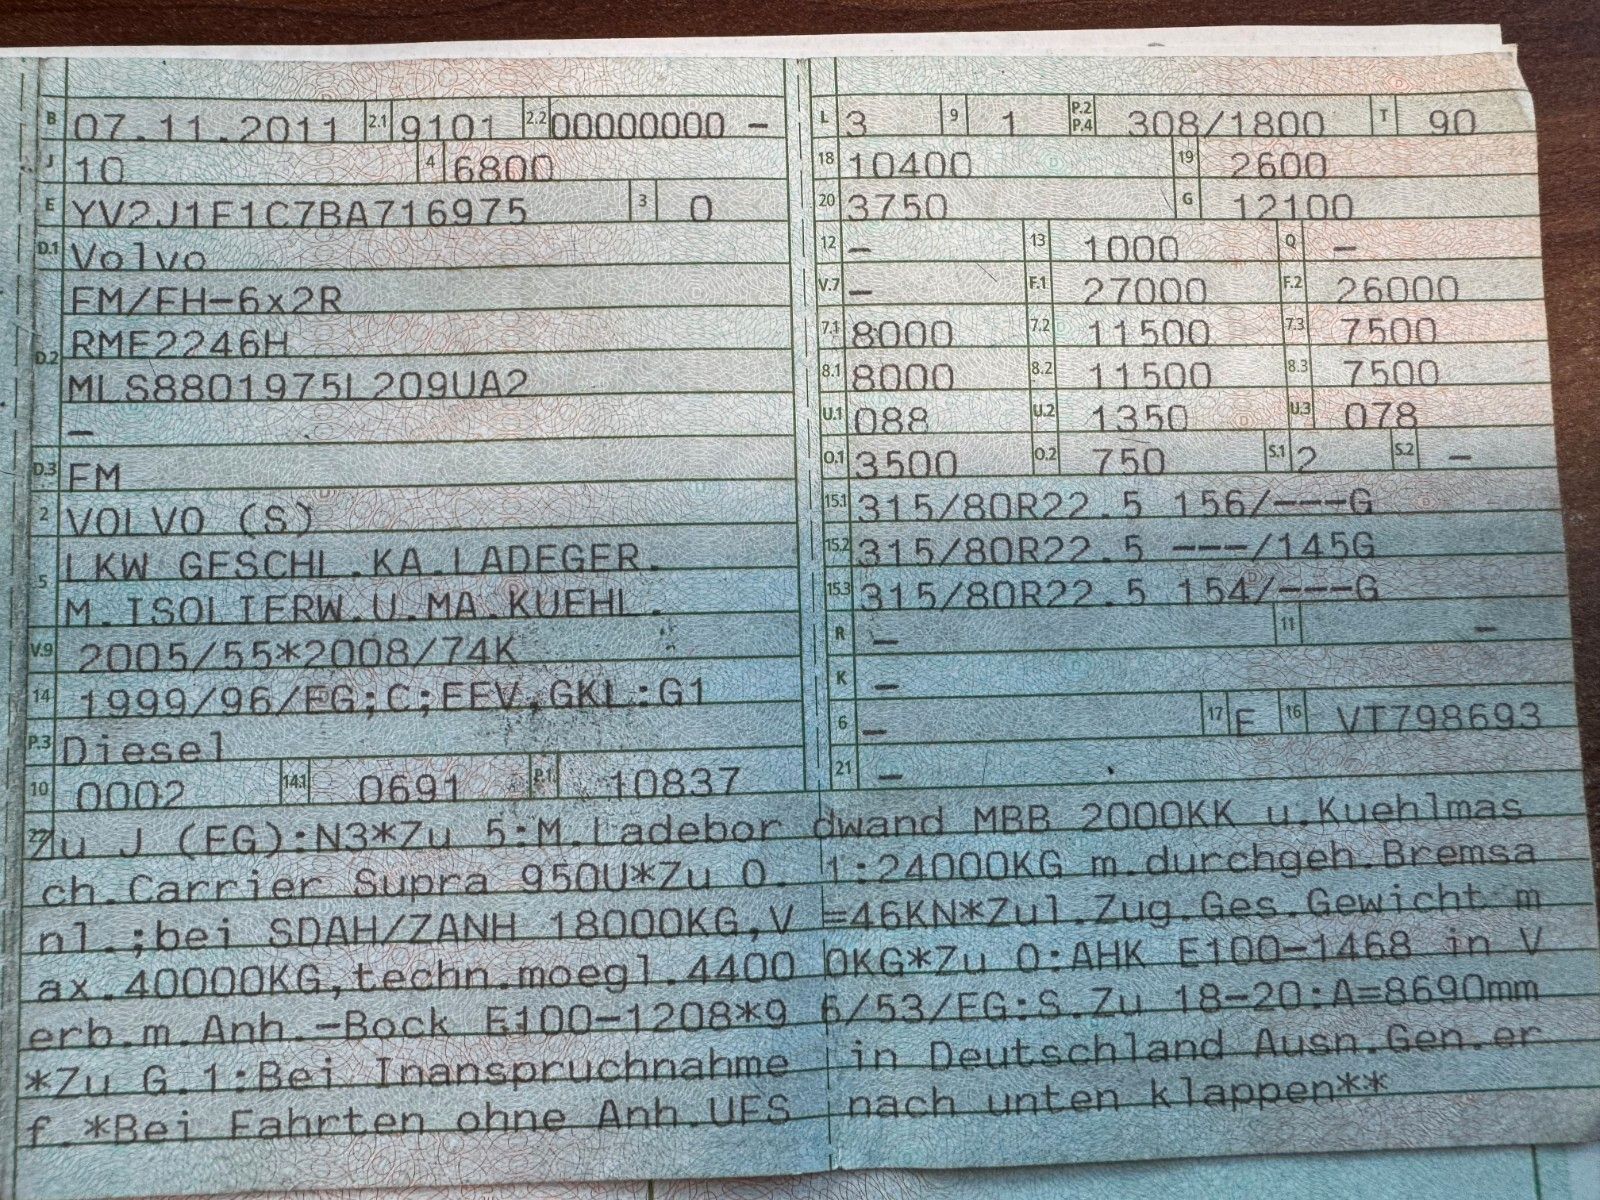 B 07.11.2011 2.1 9101 2.2 00000000 –
J 10 4 6800
E YV2J1F1C7BA716975 3 0
D.1 Volvo
FM/FH-6x2R
D.2 RME2246H
MLS8801975L209UA2
–
D.3 FM
2 VOLVO (S)
5 LKW GESCHL.KA.LADEGER.
M.ISOLIERW.U.MA.KUEHL.
V.9 2005/55*2008/74K
14 1999/96/EG;C;EEV,GKL:G1
P.3 Diesel
10 0002 14.1 0691 P.1 10837
L 3 9 1 P.2 P.4 308/1800 T 90
18 10400 19 2600
20 3750 G 12100
12 – 13 1000 Q –
V.7 – F.1 27000 F.2 26000
7.1 8000 7.2 11500 7.3 7500
8.1 8000 8.2 11500 8.3 7500
U.1 088 U.2 1350 U.3 078
O.1 3500 O.2 750 S.1 2 S.2 –
15.1 315/80R22.5 156/---G
15.2 315/80R22.5 ---/145G
15.3 315/80R22.5 154/---G
R – 11 –
K –
6 – 17 E 16 VT798693
21 –
22 Zu J (EG):N3*Zu 5:M.Ladebordwand MBB 2000KK u.Kuehlmas
ch.Carrier Supra 950U*Zu O.1:24000KG m.durchgeh.Bremsa
nl.;bei SDAH/ZANH 18000KG,V=46KN*Zul.Zug.Ges.Gewicht m
ax.40000KG,techn.moegl.44000KG*Zu O:AHK E100-1468 in V
erb.m.Anh.-Bock E100-1208*96/53/EG:S.Zu 18-20:A=8690mm
*Zu G.1:Bei Inanspruchnahme in Deutschland Ausn.Gen.er
f.*Bei Fahrten ohne Anh.UFS nach unten klappen**